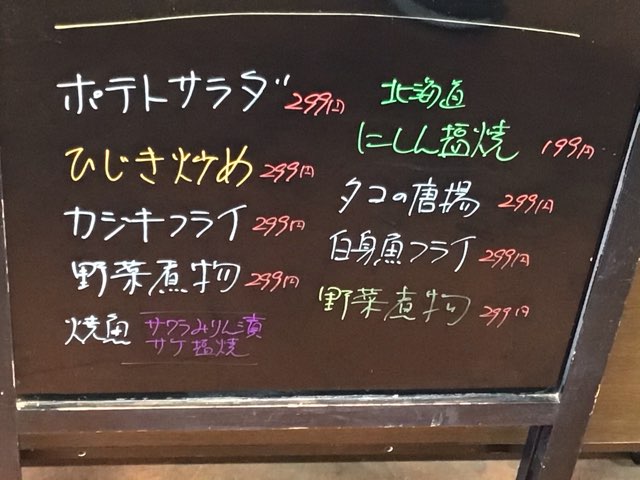 ポテトサラダ 299円
ひじき炒め 299円
カジキフライ 299円
野菜煮物 299円
焼魚 サワラみりん漬
サケ塩焼
北海道
にしん塩焼 199円
タコの唐揚 299円
白身魚フライ 299円
野菜煮物 299円